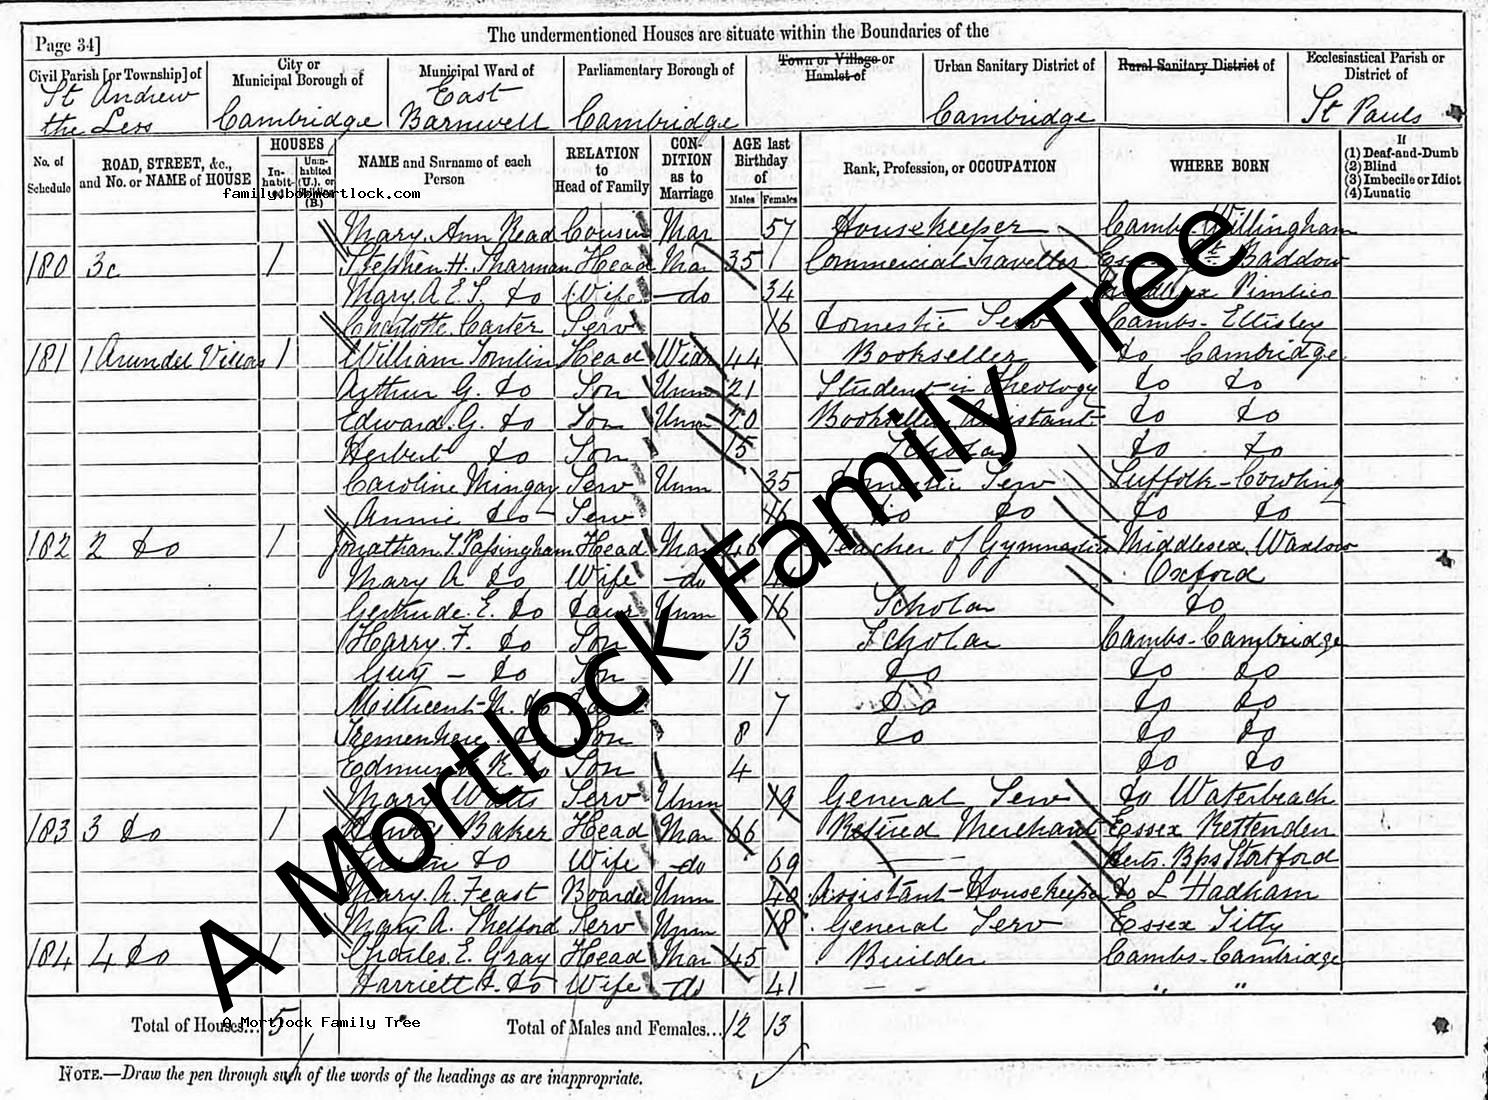 Page 34] The undermentioned Houses are situate within the Boundaries of the
Civil Parish [or Township] of City or Municipal Borough of Municipal Ward of Parliamentary Borough of Town or Village or Hamlet of Urban Sanitary District of Rural Sanitary District of Ecclesiastical Parish or District of
St Andrew the Less Cambridge East Barnwell Cambridge Cambridge St Pauls
No. of Schedule ROAD, STREET, &c., and No. or NAME of HOUSE HOUSES In-habit- Unin-habited (U.), or (B.) NAME and Surname of each Person RELATION to Head of Family CON-DITION as to Marriage AGE last Birthday of Males Females Rank, Profession, or OCCUPATION WHERE BORN If (1) Deaf-and-Dumb (2) Blind (3) Imbecile or Idiot (4) Lunatic
family.bobmortlock.com
Mary Ann Read Cousin Mar 57 Housekeeper Cambs. Willingham
180 3c 1 Stephen H. Sharman Head Mar 35 Commercial Traveller Gt Baddow
Mary A. E. S. do Wife do 34 Pimlico
Charlotte Carter Serv 16 Domestic Serv Cambs - Eltisley
181 1 Arundel Villas 1 William Tomlin Head Widr 44 Bookseller do Cambridge
Arthur G. do Son Unm 21 Student in Theology do do
Edward G. do Son Unm 20 Bookseller Assistant do do
Herbert do Son 15 Scholar do do
Caroline Mingay Serv Unm 35 Domestic Serv Suffolk - Cowling
Annie do Serv 16 do do do do
182 2 do 1 Jonathan T. Passingham Head Mar 46 Teacher of Gymnastics Middlesex
Mary A. do Wife do Oxford
Gertrude E. do Daur Unm 16 Scholar do
Harry F. do Son 13 Scholar Cambs - Cambridge
Guy - do Son 11 do do do
Millicent do 7 do do do
Tremenhere do Son 8 do do do
Edmund do Son 4 do do
Mary Watts Serv Unm 19 General Serv do Waterbeach
183 3 do 1 Henry Baker Head Mar 66 Retired Merchant Essex Rettenden
do Wife do 69 Herts. Bps Stortford
Mary A. Feast Boarder Unm 48 Assistant-Housekeeper do L Hadham
Mary A. Shelford Serv Unm 18 General Serv Essex Tilty
184 4 do 1 Charles E. Gray Head Mar 45 Builder Cambs - Cambridge
Harriett A. do Wife do 41 " "
Total of Houses... 5 Total of Males and Females... 12 13
A Mortlock Family Tree
NOTE.—Draw the pen through such of the words of the headings as are inappropriate.
A Mortlock Family Tree